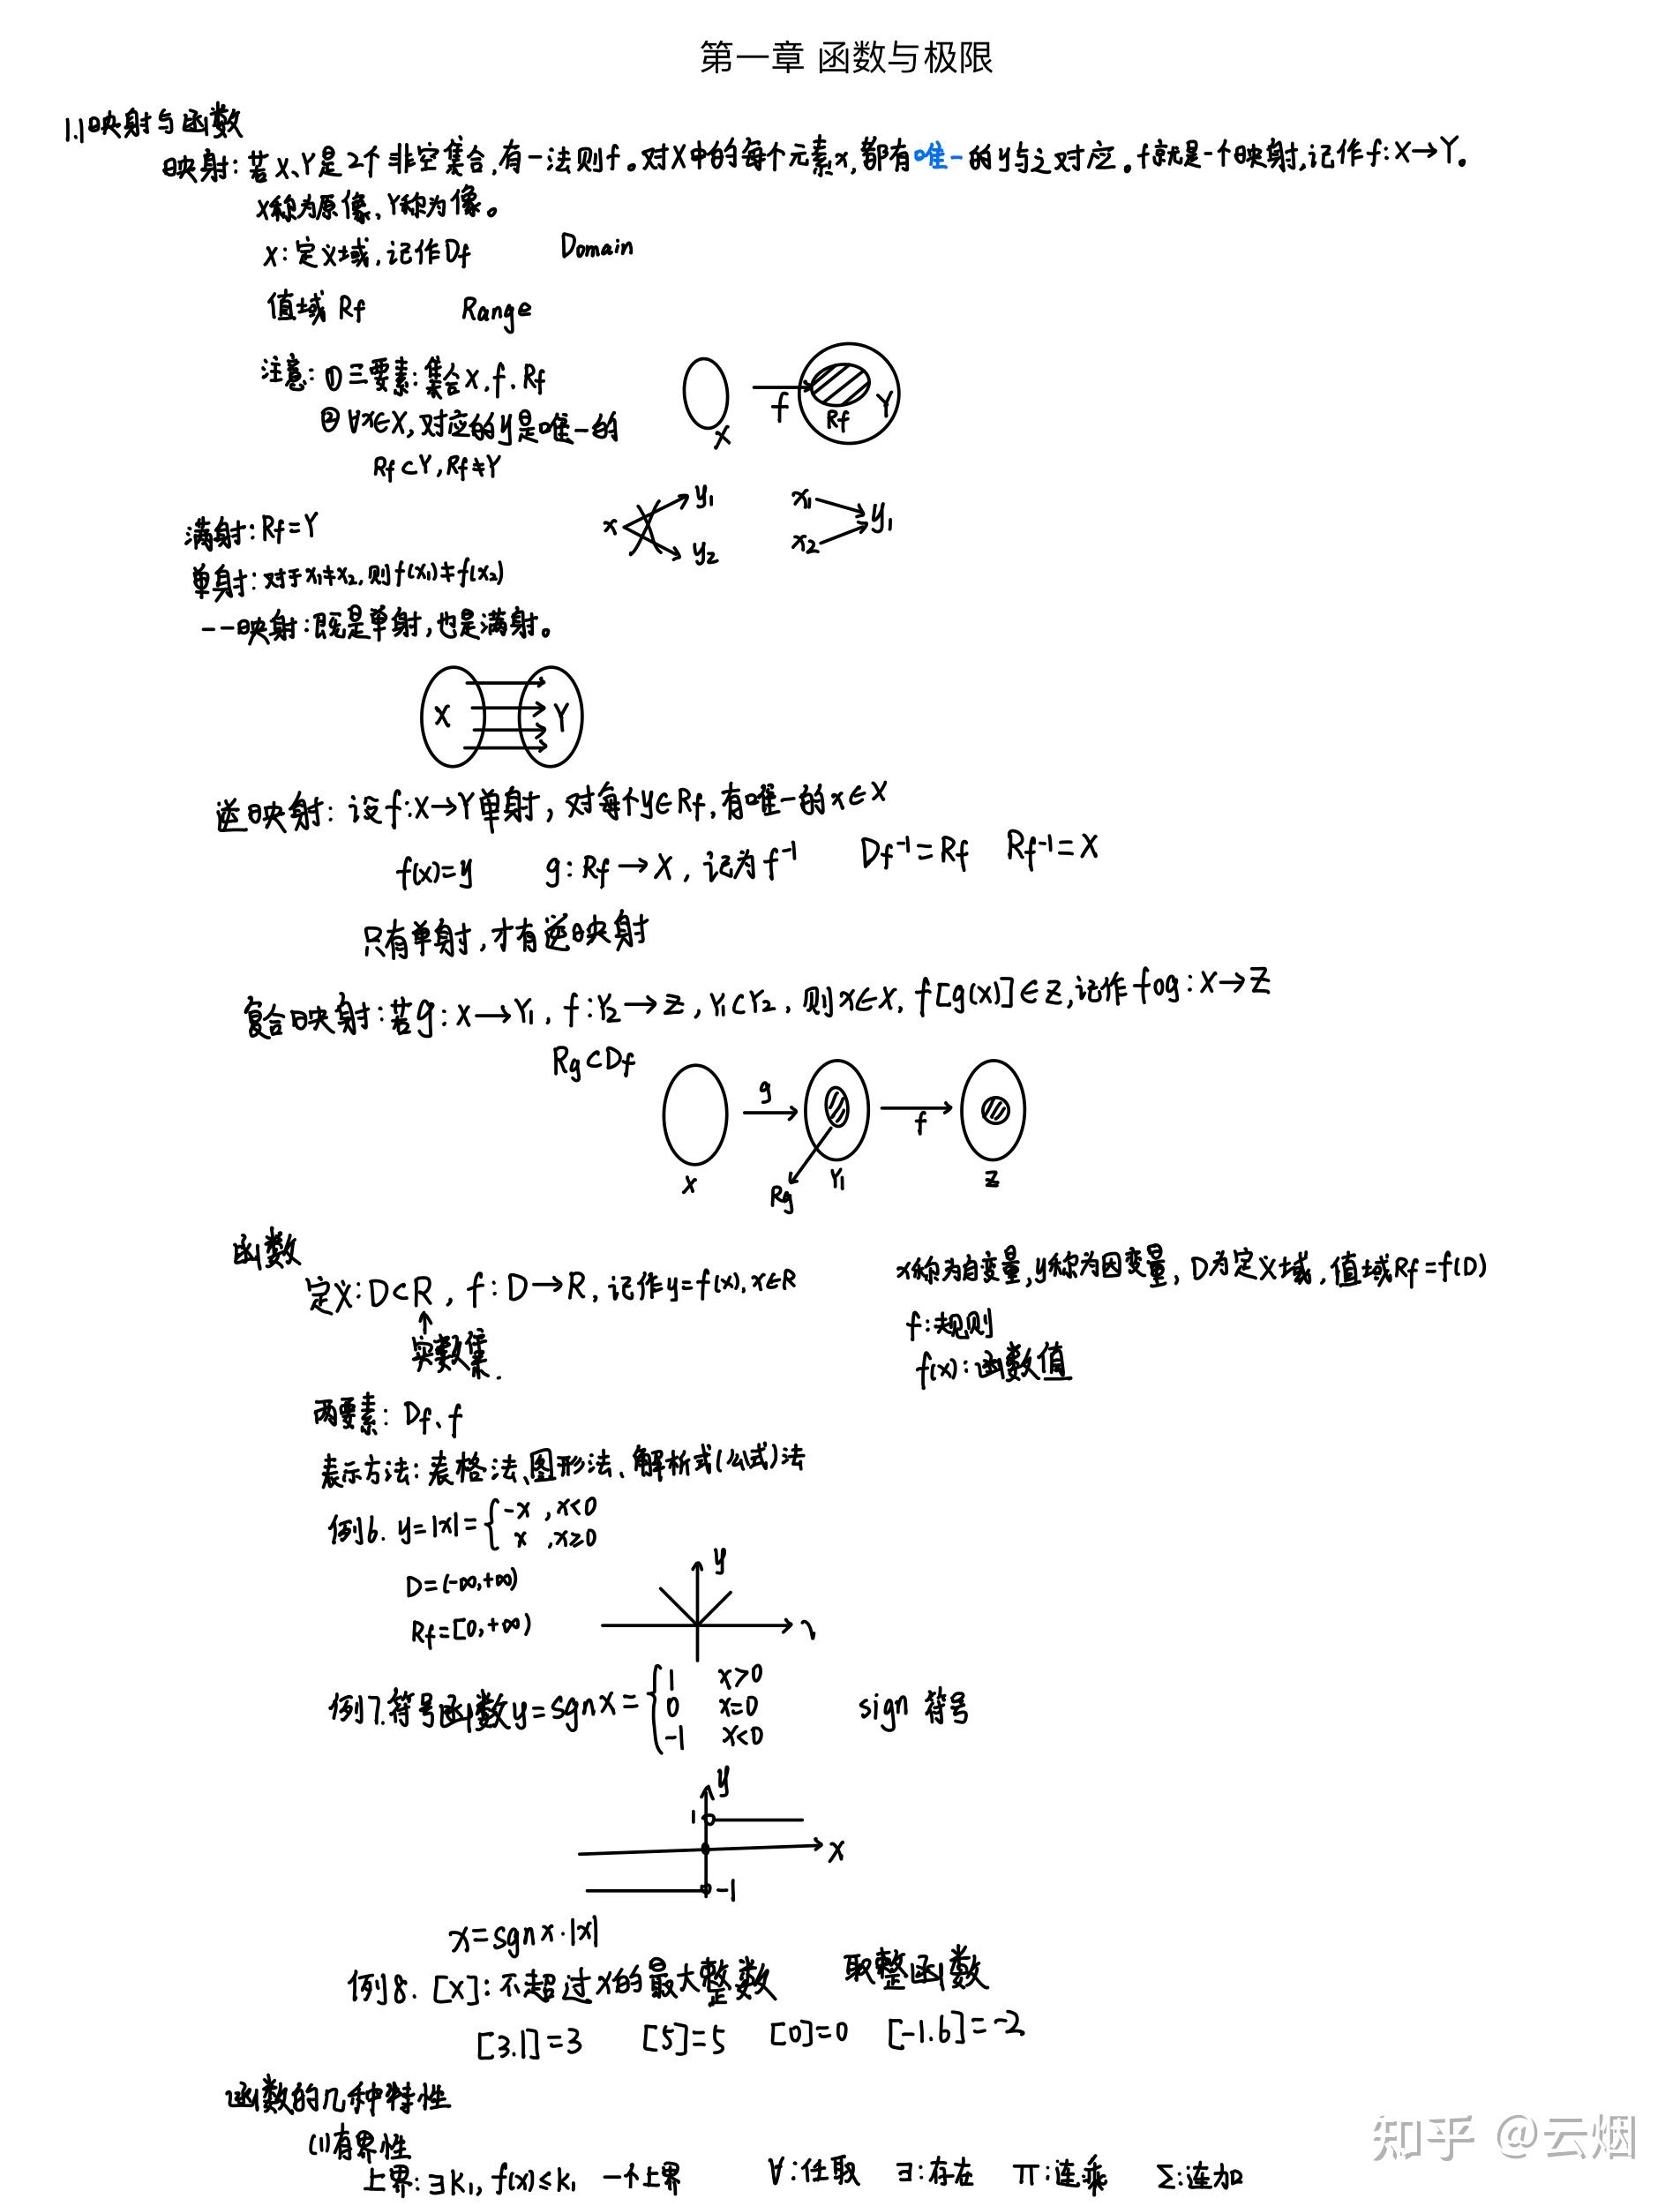 第一章 函数与极限
1.1映射与函数
映射:若X、Y是2个非空集合,有一法则f。对X中的每个元素x,都有唯一的y与之对应。f就是一个映射,记作f:X→Y。
X称为原像、Y称为像。
X:定义域,记作Df Domain
值域 Rf Range
注意:① 三要素:集合X,f、Rf
② ∀x∈X,对应的y是唯一的
Rf⊂Y,Rf≠Y
X f Rf Y
满射:Rf=Y
单射:对于x₁≠x₂,则f(x₁)≠f(x₂)
一一映射:既是单射,也是满射。
x y₁ y₂ x₁ x₂ y₁
X Y
逆映射:设f:X→Y单射,对每个y∈Rf,有唯一的x∈X
f(x)=y g:Rf→X,记为f⁻¹ Df⁻¹=Rf Rf⁻¹=X
只有单射,才有逆映射
复合映射:若g:X→Y₁、f:Y₂→Z,Y₁⊂Y₂,则x∈X,f[g(x)]∈Z,记作f∘g:X→Z
Rg⊂Df
X g Rg Y₁ f Z
函数
定义:D⊂R,f:D→R,记作y=f(x),x∈R
↑
实数集.
x称为自变量,y称为因变量,D为定义域,值域Rf=f(D)
f:规则
f(x):函数值
两要素:Df、f
表示方法:表格法、图形法、解析式(公式)法
例6. y=|x|={-x ,x<0
x ,x≥0
D=(-∞,+∞)
Rf=[0,+∞)
y
例7.符号函数y=sgn x={1 x>0
0 x=0
-1 x<0
sign 符号
y
1
x
-1
x=sgn x·|x|
例8. [x]:不超过x的最大整数 取整函数
[3.1]=3 [5]=5 [0]=0 [-1.6]=-2
函数的几种特性
(1)有界性
上界:∃K₁,f(x)≤K₁ 一个上界 ∀:任取 ∃:存在 π:连乘 Σ:连加
知乎 @云烟